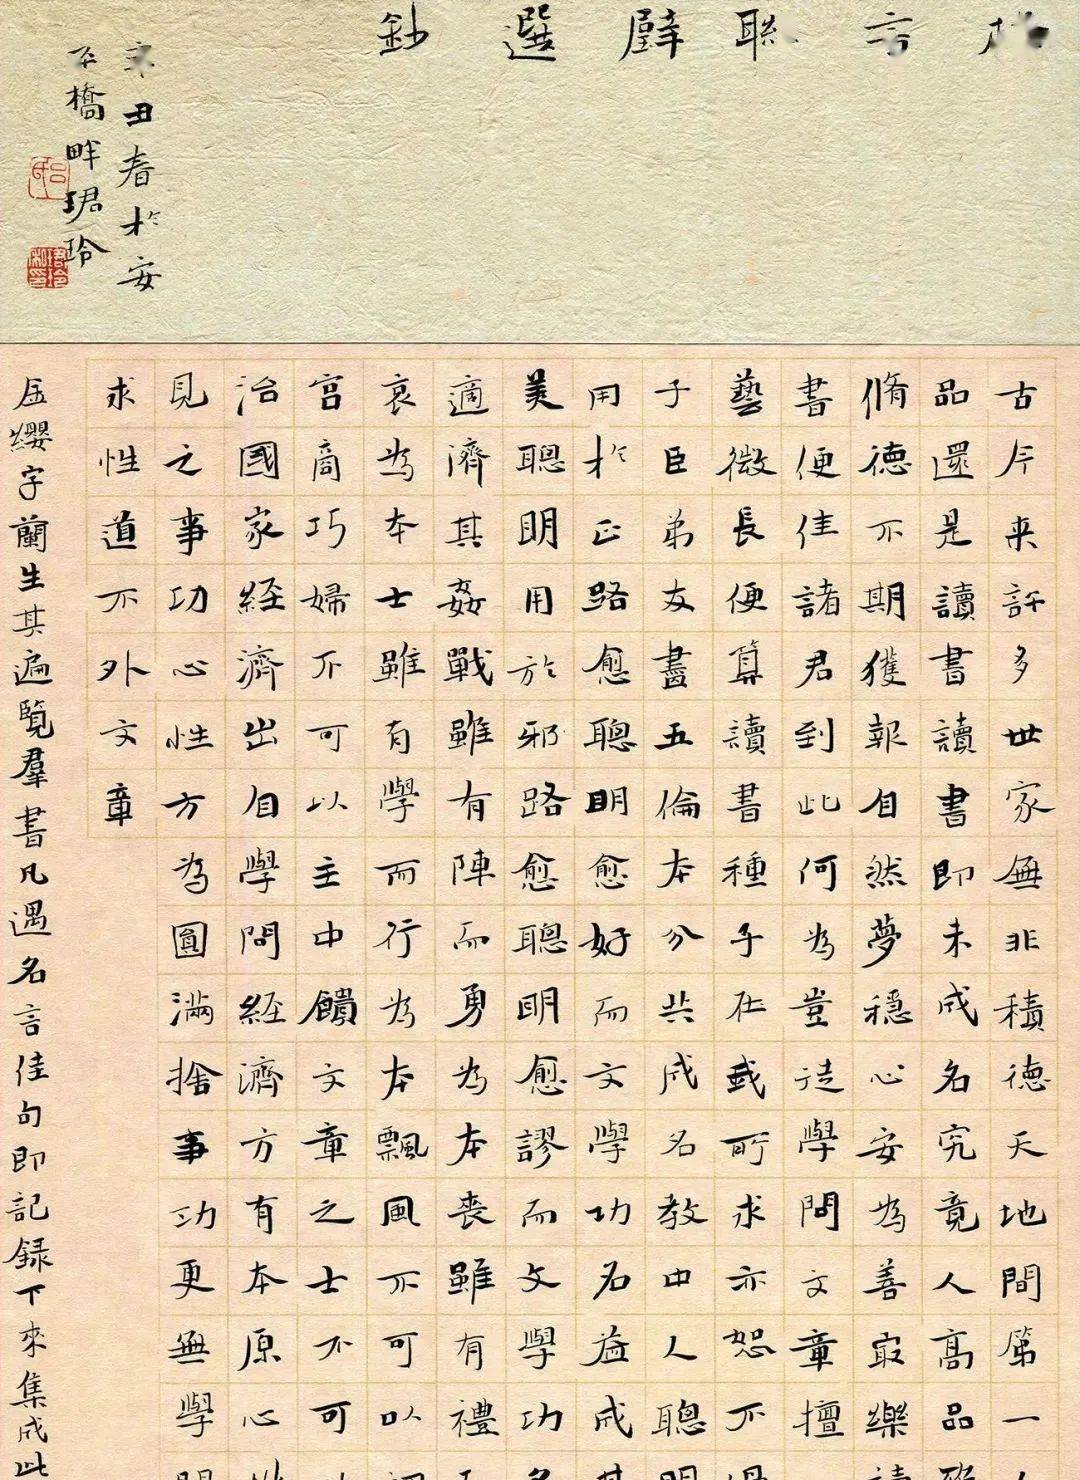 格言聯璧選鈔
辛丑春於安
平橋畔珺玲
古今来許多世家無非積德天地間第一
品還是讀書讀書即未成名究竟人高品
脩德不期獲報自然夢穩心安為善最樂
書便佳諸君到此何為豈徒學問文章擅
藝微長便算讀書種子在我所求亦恕不
子臣弟友盡五倫本分共成名教中人聰
用於正路愈聰明愈好而文學功名益成
美聰明用於邪路愈聰明愈謬而文學功
適濟其姦戰雖有陣而勇為本喪雖有禮
哀為本士雖有學而行為本飄風不可以
宮商巧婦不可以主中饋文章之士不可
治國家經濟出自學問經濟方有本原心
見之事功心性方為圓滿捨事功更無學
求性道不外文章
金纓字蘭生其遍覽羣書凡遇名言佳句即記録下來集成此